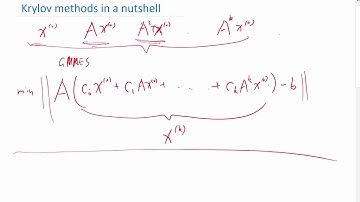 Krylov methods in a nutshell
x⁽⁰⁾ Ax⁽⁰⁾ A²x⁽⁰⁾ Aᵏx⁽⁰⁾
GMRES
min ‖A(c₀x⁽⁰⁾ + c₁Ax⁽⁰⁾ + ...... + cₖAᵏx⁽⁰⁾) - b‖
x⁽ᵏ⁾